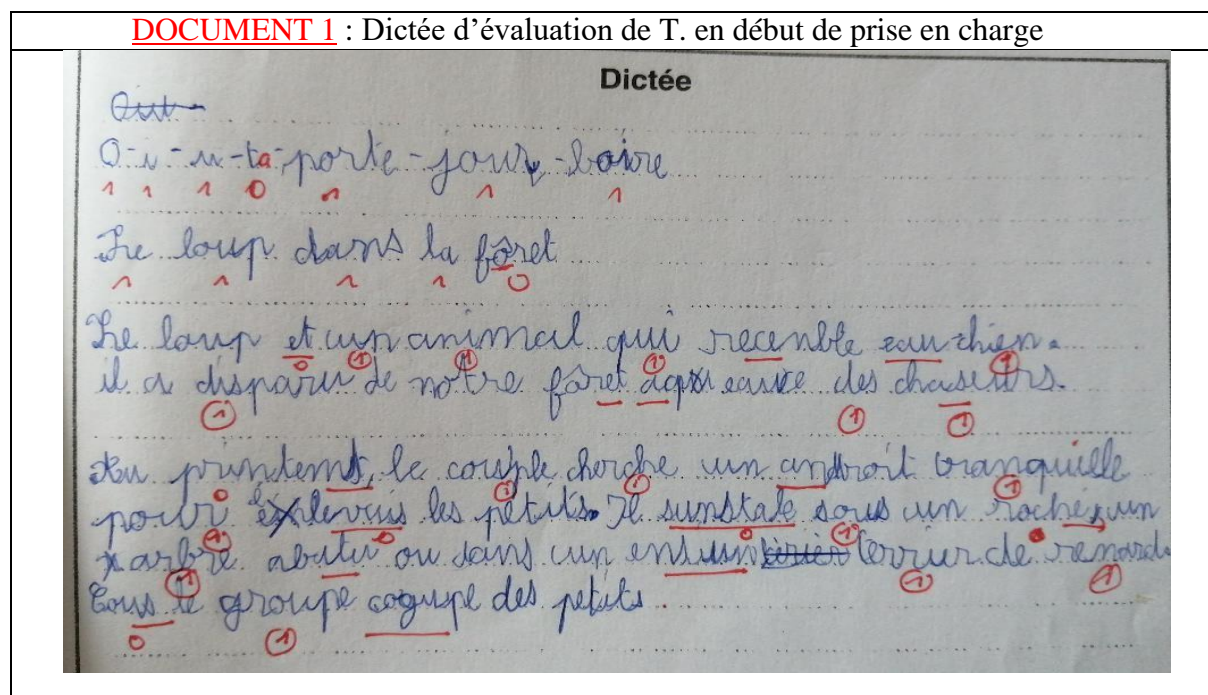 DOCUMENT 1 : Dictée d’évaluation de T. en début de prise en charge
Dictée
O - i - u - ta - porte - jour - boire
1 1 1 0 1 1 1
Le loup dans la fôret
1 1 1 1 0
Le loup et un animal qui recenble eau chien.
0 1 1 1 1
il a disparu de notre fôret à des chaseurs.
1 1 1
Au printemt, le couple cherche un androit tranquille
0 1 1 1
pour les petits. Il sunstale sous un rocher, un
1 0 0 1
arbre abutu ou dans un ensiun terrier de renard.
1 1 1
Tous le groupe cogupe des petits
0 1